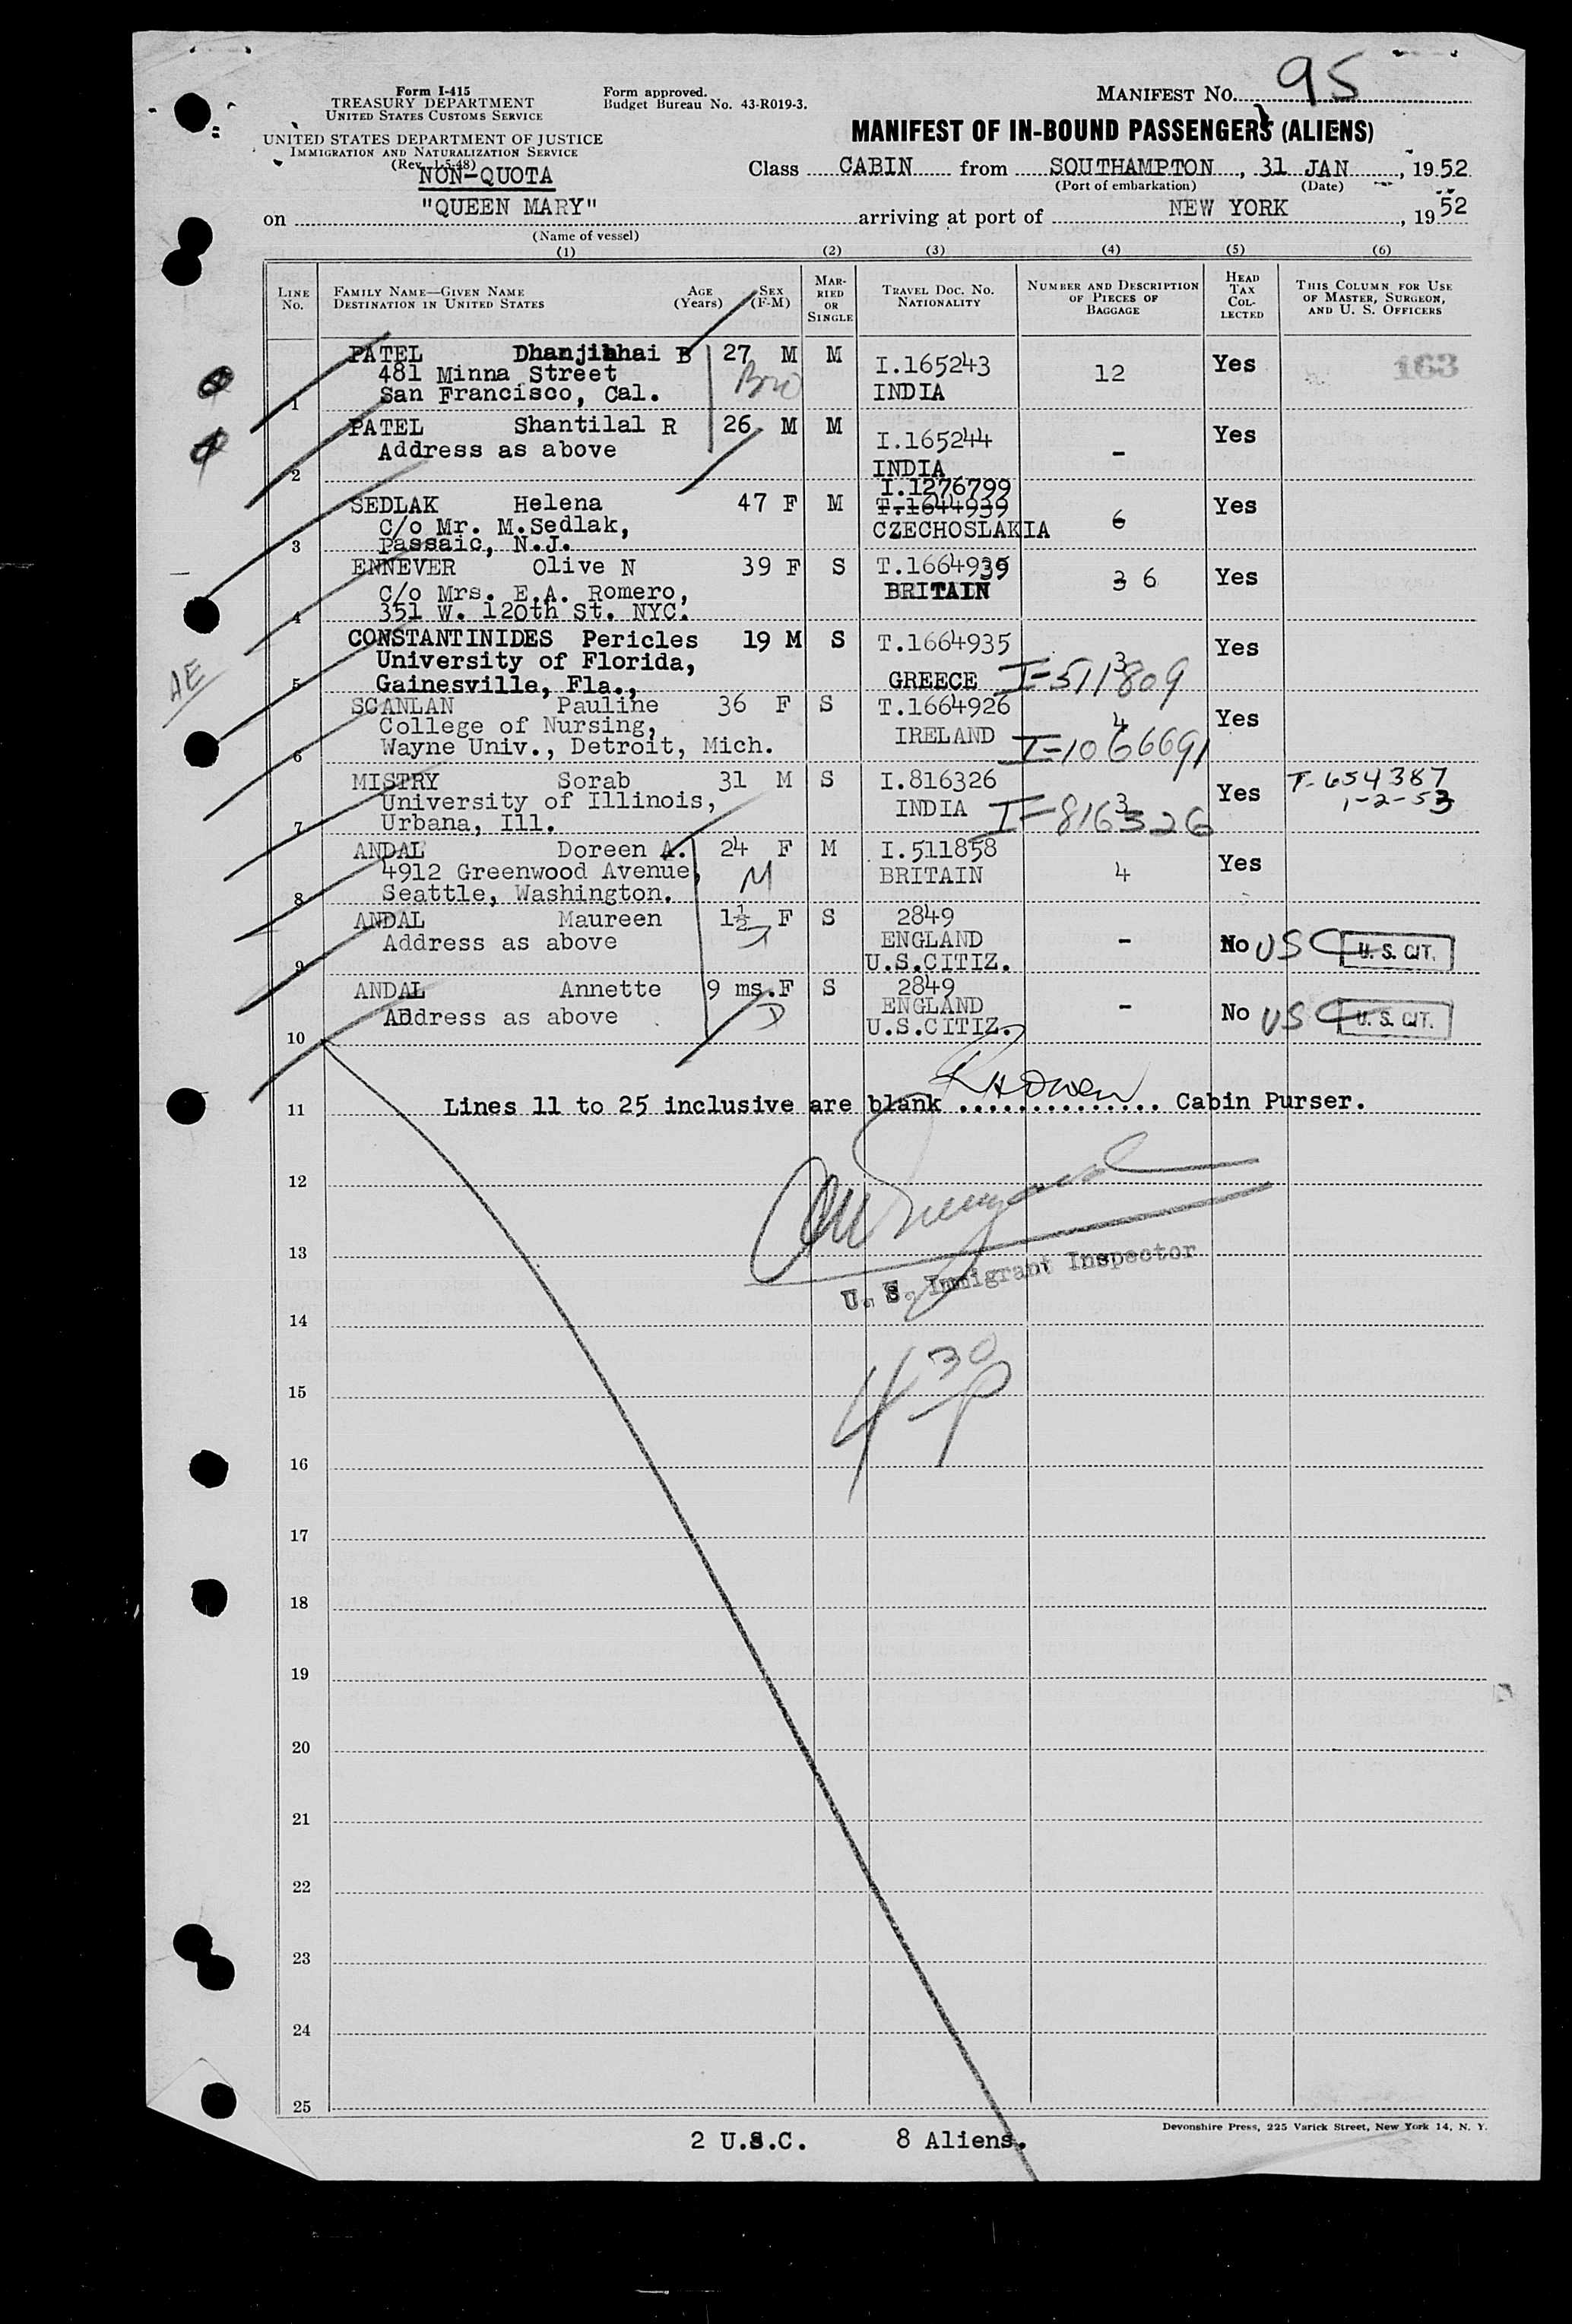 Form I-415
TREASURY DEPARTMENT
UNITED STATES CUSTOMS SERVICE
UNITED STATES DEPARTMENT OF JUSTICE
IMMIGRATION AND NATURALIZATION SERVICE
(Rev. 1-5-48)
NON-QUOTA
Form approved.
Budget Bureau No. 43-R019-3.
MANIFEST NO. 95
MANIFEST OF IN-BOUND PASSENGERS (ALIENS)
Class CABIN from SOUTHAMPTON, 31 JAN, 1952
(Port of embarkation) (Date)
on "QUEEN MARY" arriving at port of NEW YORK, 1952
(Name of vessel)
(1) (2) (3) (4) (5) (6)
LINE NO.
FAMILY NAME—GIVEN NAME
DESTINATION IN UNITED STATES
AGE (Years)
SEX (F-M)
MARRIED OR SINGLE
TRAVEL DOC. NO.
NATIONALITY
NUMBER AND DESCRIPTION OF PIECES OF BAGGAGE
HEAD TAX COLLECTED
THIS COLUMN FOR USE OF MASTER, SURGEON, AND U. S. OFFICERS
1 PATEL Dhanjibhai B 27 M M I.165243 12 Yes 163
481 Minna Street Bro INDIA
San Francisco, Cal.
2 PATEL Shantilal R 26 M M I.165244 - Yes
Address as above INDIA
I.1276799
3 SEDLAK Helena 47 F M T.1644939 6 Yes
c/o Mr. M.Sedlak, CZECHOSLAKIA
Passaic, N.J.
4 ENNEVER Olive N 39 F S T.1664939 3 6 Yes
c/o Mrs. E.A. Romero, BRITAIN
351 W. 120th St. NYC.
AE
5 CONSTANTINIDES Pericles 19 M S T.1664935 3 Yes
University of Florida, GREECE I-511809
Gainesville, Fla.,
6 SCANLAN Pauline 36 F S T.1664926 4 Yes
College of Nursing, IRELAND I-1066691
Wayne Univ., Detroit, Mich.
7 MISTRY Sorab 31 M S I.816326 3 Yes T-654387
University of Illinois, INDIA I-816326 1-2-53
Urbana, Ill.
8 ANDAL Doreen A. 24 F M I.511858 4 Yes
4912 Greenwood Avenue, M BRITAIN
Seattle, Washington.
9 ANDAL Maureen 1½ F S 2849 - No USC U. S. CIT.
Address as above ENGLAND
U.S.CITIZ.
10 ANDAL Annette 9 ms.F S 2849 - No USC U. S. CIT.
Address as above D ENGLAND
U.S.CITIZ.
11 Lines 11 to 25 inclusive are blank .............. Cabin Purser.
12
13
U. S. Immigrant Inspector
14
4 30 p
15
16
17
18
19
20
21
22
23
24
25
2 U.S.C. 8 Aliens.
Devonshire Press, 225 Varick Street, New York 14, N. Y.